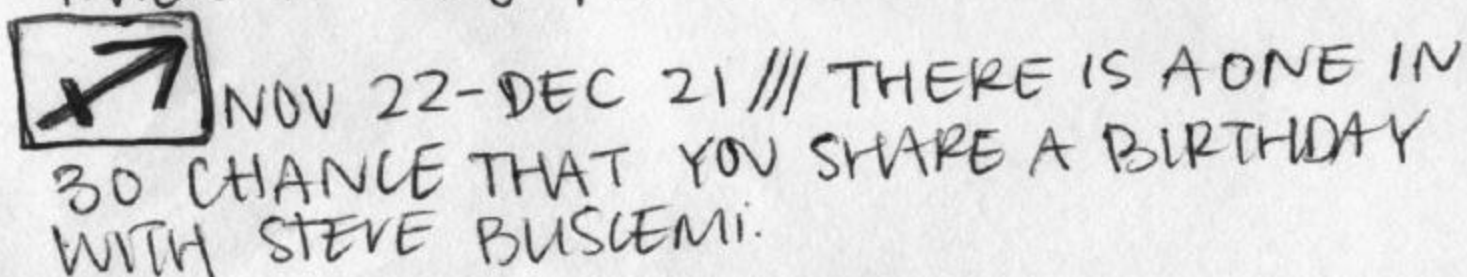 NOV 22-DEC 21 /// THERE IS A ONE IN
30 CHANCE THAT YOU SHARE A BIRTHDAY
WITH STEVE BUSCEMI.